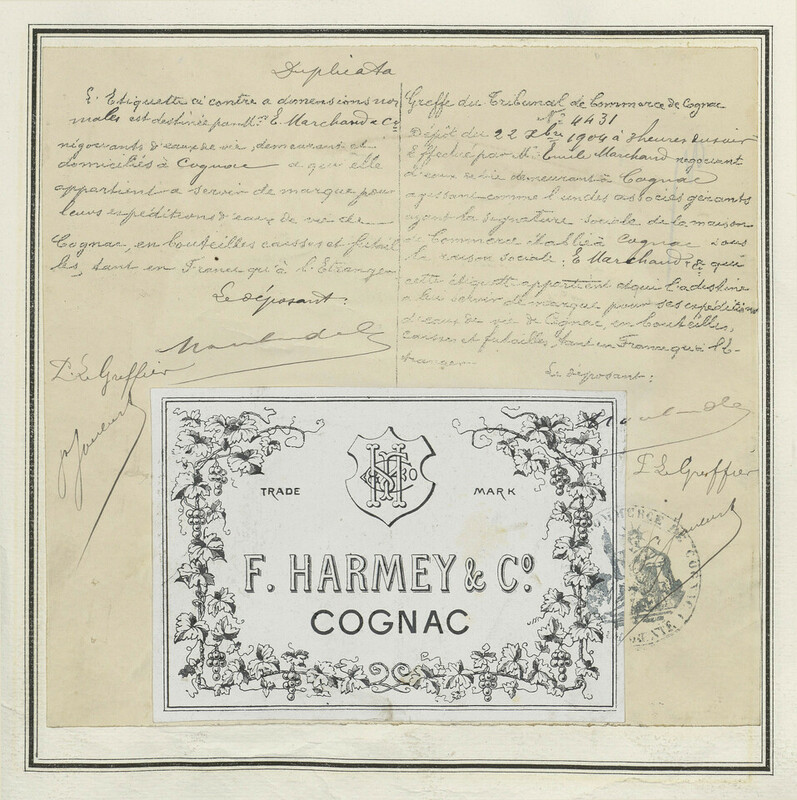 Duplicata
L'Etiquette ci contre a dimensions nor
males est destinée par Mrs E. Marchand & Co
négociants d'eaux de vie, demeurant et
domiciliés à Cognac a qui elle
appartient a servir de marque pour
leurs expéditions d'eaux de vie de
Cognac, en bouteilles caisses et futail
les, tant en France qu'à l'Etranger
Le déposant:
P. Le Greffier
Greffe du Tribunal de Commerce de Cognac
No 4431
Dépôt du 22 Xbre 1904 à heures du soir
Effectué par Mr Emile Marchand négociant
d'eaux de vie demeurant à Cognac
agissant comme l'un des associés gérants
ayant la signature sociale de la maison
de Commerce établie à Cognac sous
la raison sociale: E Marchand & à qui
cette étiquette appartient et qui l'a destine
a lui servir de marque pour ses expéditions
d'eaux de vie de Cognac, en bouteilles,
caisses et futailles, tant en France qu'à l'E-
tranger
Le déposant:
P. Le Greffier
TRADE MARK
F. HARMEY & Co.
COGNAC
COMMERCE DE COGNAC